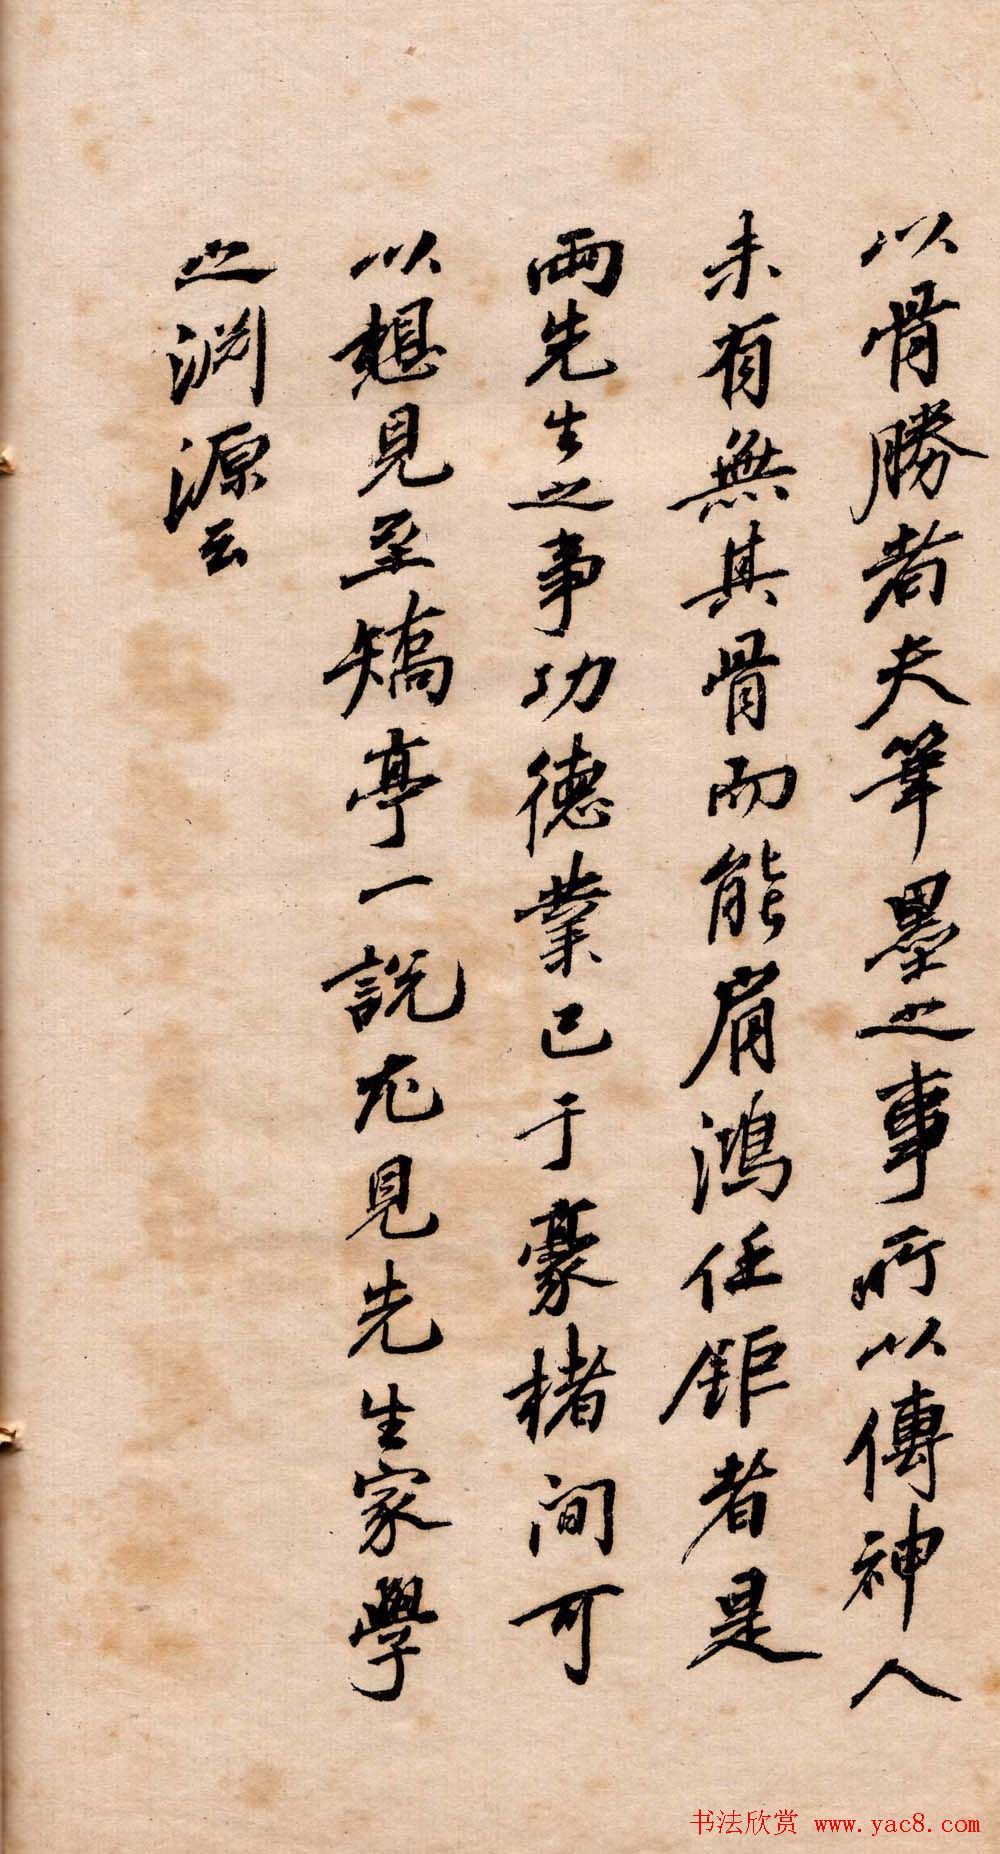 以骨勝者夫筆墨之事所以傳神人
未有無其骨而能肩鴻任鉅者是
兩先生之事功德業已于豪楮間可
以想見至矯亭一說尤見先生家學
之淵源云
书法欣赏 www.yac8.com